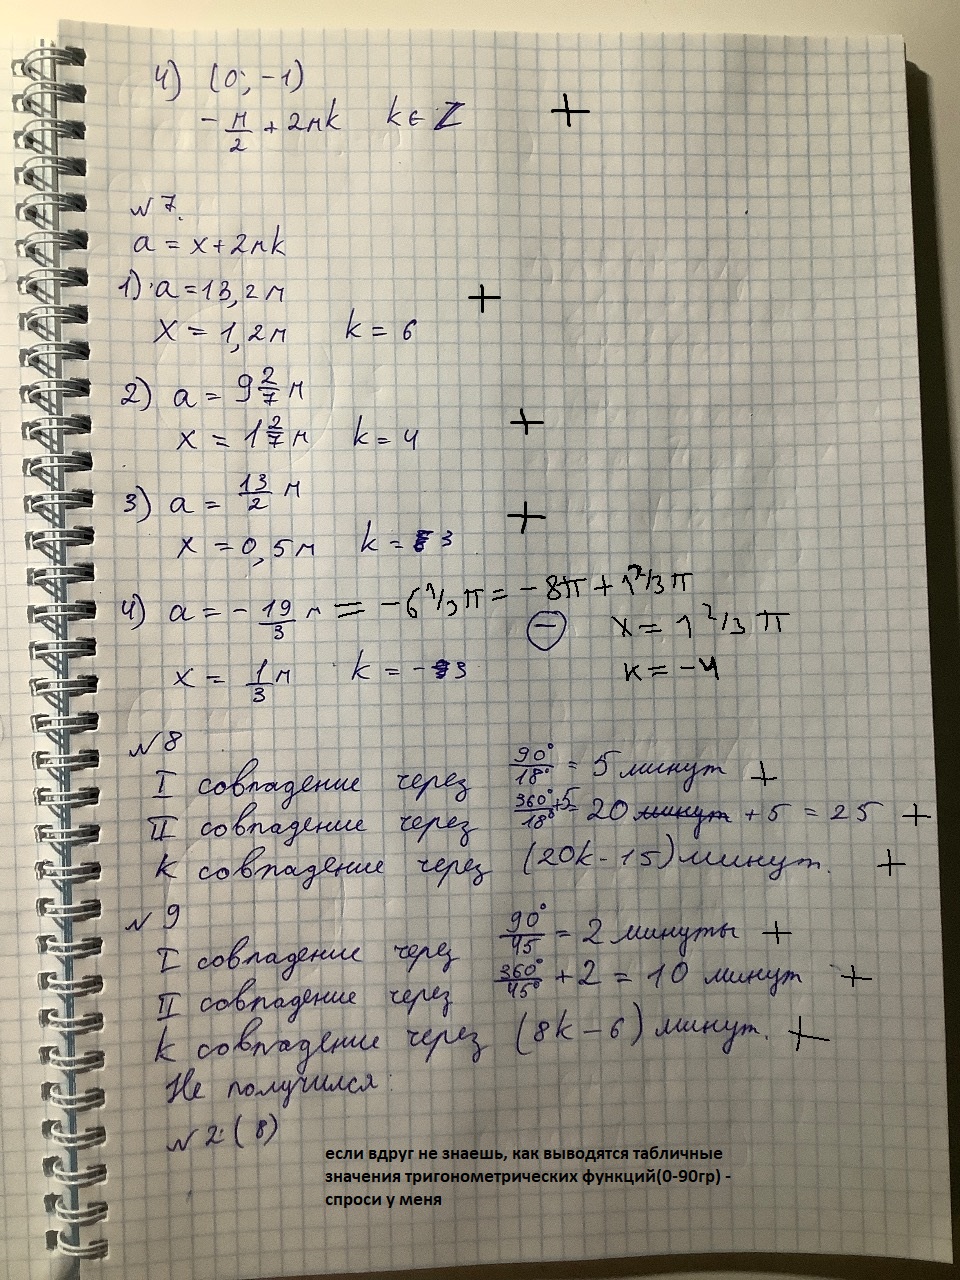 4) (0; -1)
- π/2 + 2πk k ∈ Z +
№7.
a = x + 2πk
1) a = 13,2π +
x = 1,2π k = 6
2) a = 9 2/7 π
x = 1 2/7 π k = 4 +
3) a = 13/2 π +
x = 0,5π k = 3
4) a = - 19/3 π = -6 1/3 π = -8π + 1 2/3 π
⊖ x = 1 2/3 π
x = 1/3 π k = -3 k = -4
№8
I совпадение через 90°/18° = 5 минут +
II совпадение через 360°/18° +5 = 20 минут + 5 = 25 +
k совпадение через (20k - 15) минут. +
№9
I совпадение через 90°/45 = 2 минуты +
II совпадение через 360°/45° + 2 = 10 минут +
k совпадение через (8k - 6) минут. +
Не получился:
№2: (8)
если вдруг не знаешь, как выводятся табличные
значения тригонометрических функций(0-90гр) -
спроси у меня